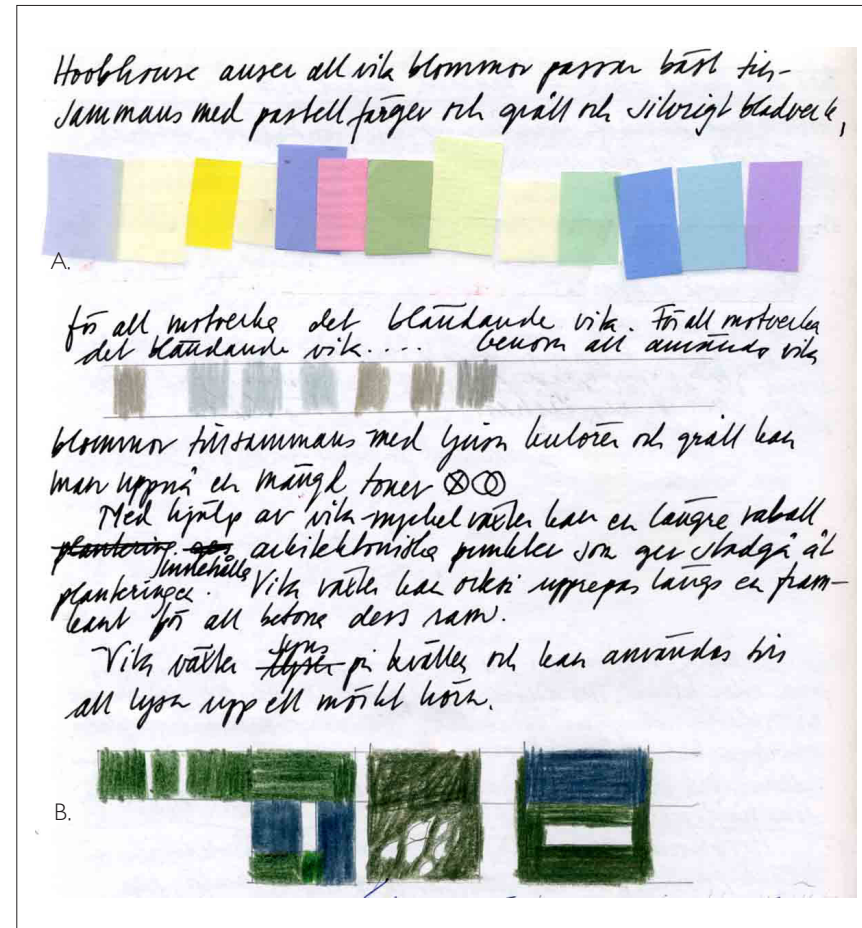 Hoobhouse anser att vita blommor passar bäst till-
sammans med pastell färger och grått och silvrigt bladverk,
A.
för att motverka det bländande vita. För att motverka
det bländande vita.... Genom att använda vita
blommor tillsammans med ljusa kulörer och grått kan
man uppnå en mängd toner
Med hjälp av vita mycket växter kan en längre rabatt
plantering innehålla arkitektoniska punkter som ger stadga åt
planteringen. Vita växter kan också upprepas längs en fram-
kant för att betona dess ram.
Vita växter lyser på kvällen och kan användas till
att lysa upp ett mörkt hörn.
B.